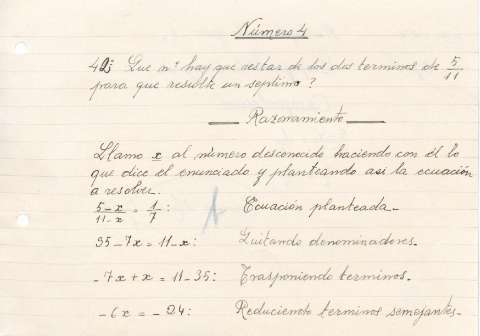 Número 4
42: Que nº hay que restar de los dos terminos de 5/11
para que resulte un septimo?
Razonamiento
Llamo x al número desconocido haciendo con él lo
que dice el enunciado y planteando así la ecuación
a resolver.
5-x/11-x = 1/7: Ecuación planteada.
35-7x = 11-x: Quitando denominadores.
-7x+x = 11-35: Trasponiendo terminos.
-6x = -24: Reduciendo terminos semejantes.